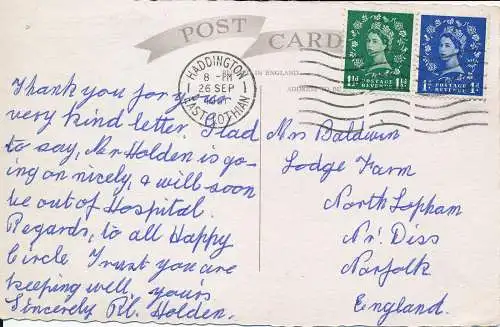 POST CARD
HADDINGTON
8 - PM
26 SEP
EAST LOTHIAN
1½d POSTAGE REVENUE 1½d
1d POSTAGE REVENUE 1d
IN ENGLAND
ADDRESS
Thank you for your
very kind letter. Glad
to say, Mr Holden is go-
ing on nicely, & will soon
be out of Hospital.
Regards, to all Happy
Circle Trust you are
keeping well, yours
Sincerely Holden.
Mrs Baldwin
Lodge Farm
North Lopham
Nr. Diss
Norfolk
England.